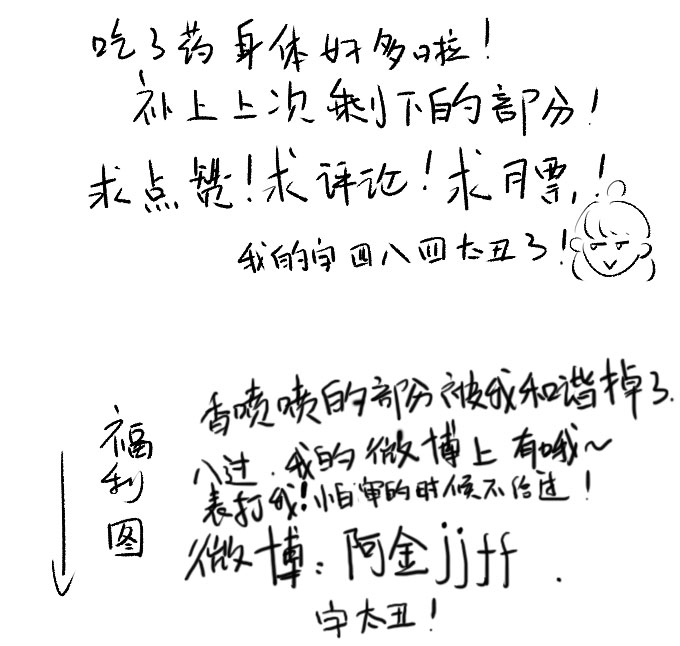 吃了药身体好多啦！
补上上次剩下的部分！
求点赞！求评论！求月票！
我的字四八四太丑了！
香喷喷的部分被我和谐掉了.
八过.我的微博上有哦~
表打我！怕审的时候不给过！
微博：阿金jjff.
字太丑！
福利图